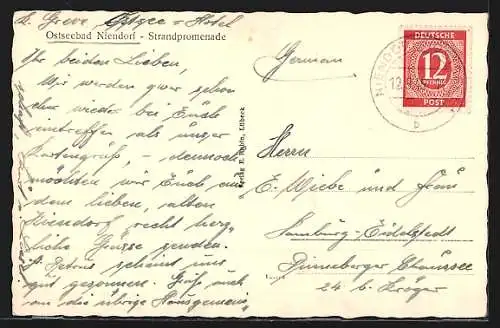 z. Greve Ostsee-Hotel
Ostseebad Niendorf - Strandpromenade
Ihr beiden Lieben
Wir werden zwar schon
eher wieder bei Euch
eintreffen als unser
Kartengruß, - dennoch
möchten wir Euch aus
dem lieben, alten
Niendorf recht herz-
liche Grüsse senden.
St. Petrus scheint uns
gut gesonnen. Grüß auch
an die übrige Hausgemein
Germany
DEUTSCHE
12
PFENNIG
POST
NIENDO
12.
b
Herrn
E. Wiebe und Frau
Hamburg-Eidelstedt
Pinneberger Chaussee
24 b. Kröger
Verlag
Lübeck